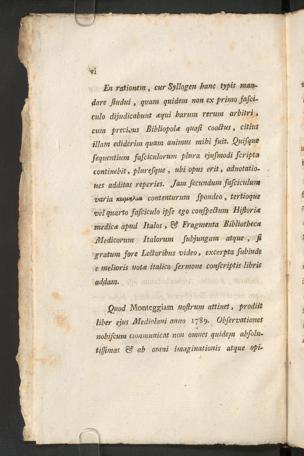 vi
En rationem, cur Syllogen hanc typis man-
dare studui, quam quidem non ex primo fasci-
culo dijudicabunt æqui harum rerum arbitri,
cum precibus Bibliopolæ quasi coactus, citius
illam ediderim quam animus mihi fuit. Quisque
sequentium fasciculorum plura ejusmodi scripta
continebit, pluresque, ubi opus erit, adnotatio-
nes additas reperies. Jam secundum fasciculum
varia contenturum spondeo, tertioque
vel quarto fasciculo ipse ego conspectum Historiæ
medicæ apud Italos, & Fragmenta Bibliothecæ
Medicorum Italorum subjungam atque, si
gratum fore Lectoribus video, excerpta subinde
e melioris notæ italico sermone conscriptis libris
addam.
Quod Monteggiam nostrum attinet, prodiit
liber ejus Mediolani anno 1789. Observationes
nobiscum communicat non omnes quidem absolu-
tissimas & ab omni imaginationis atque opi-